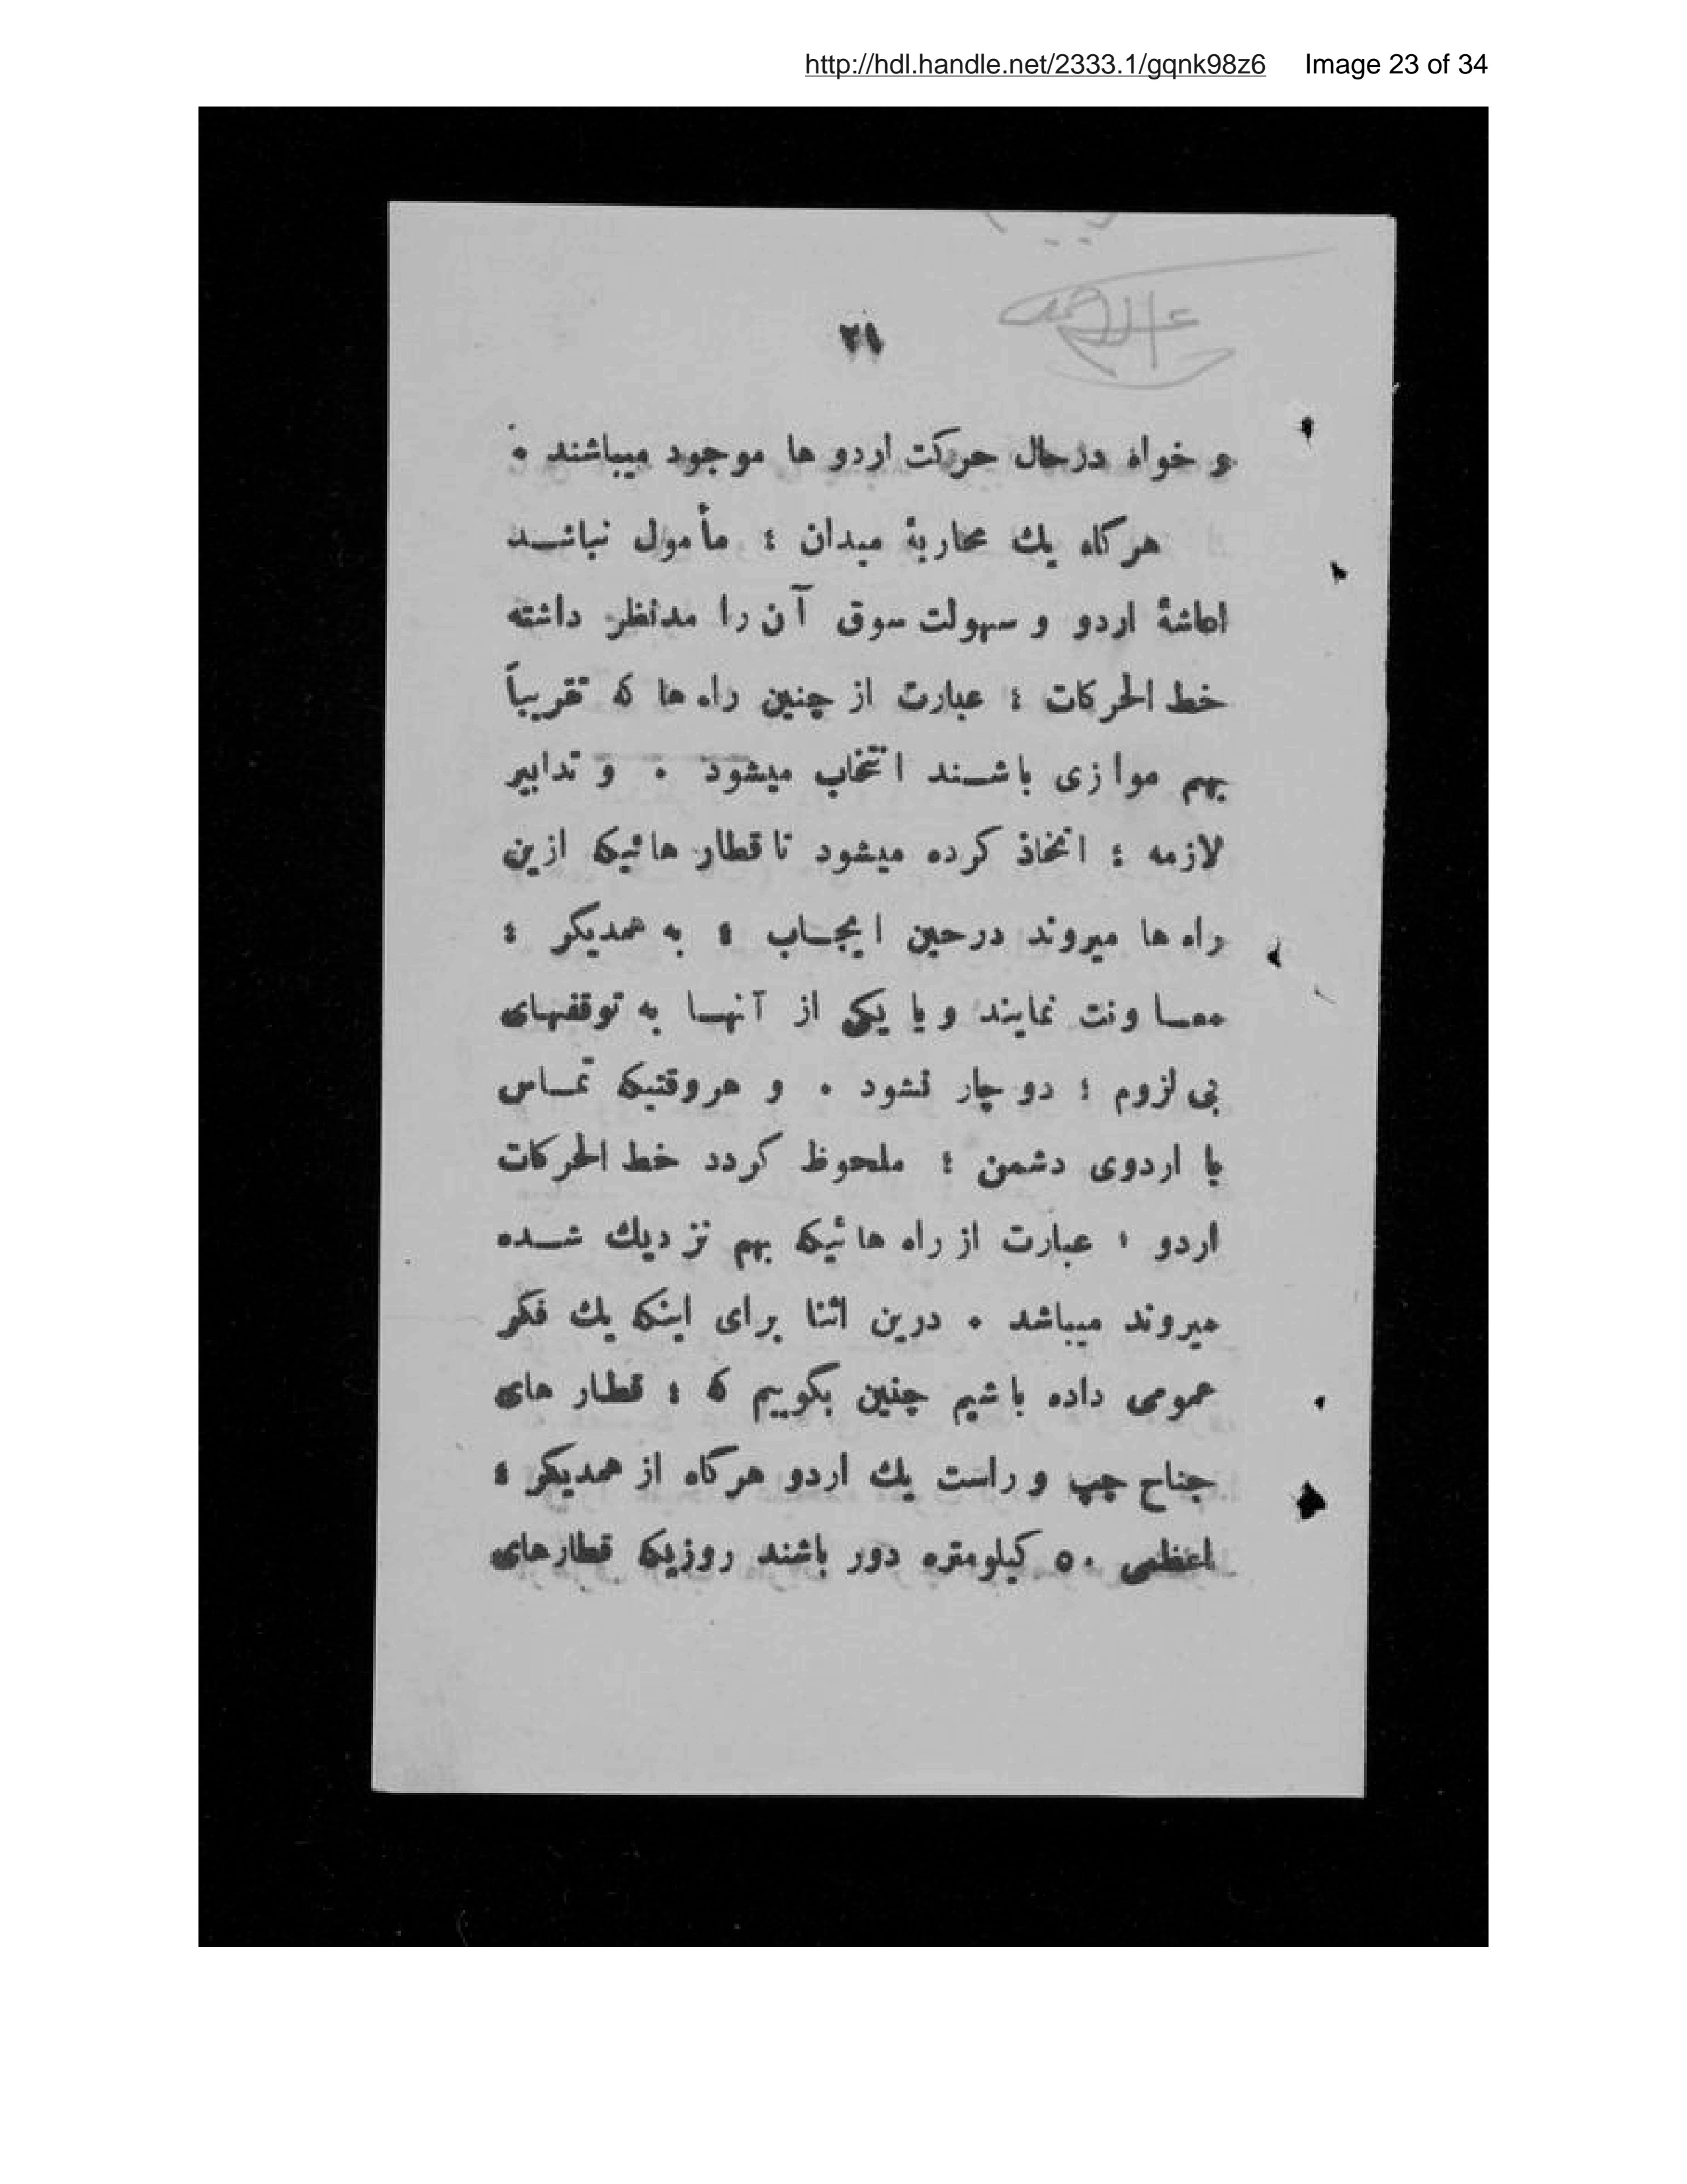 http://hdl.handle.net/2333.1/gqnk98z6 Image 23 of 34
٢١
و خواه درحال حرکت اردو ها موجود میباشند .
هرکاه یك محاربهٔ میدان ؛ مأمول نباشد
اعاشهٔ اردو و سهولت سوق آن را مدنظر داشته
خط الحرکات ؛ عبارت از چنین راه ها که تقریباً
بهم موازی باشند انتخاب میشود . و تدابیر
لازمه ؛ اتخاذ کرده میشود تا قطار هائیکه ازین
راه ها میروند درحین ایجاب ؛ به همدیکر ؛
معاونت نمایند و یا یکی از آنها به توقفهای
بی لزوم ؛ دوچار نشود . و هروقتیکه تماس
با اردوی دشمن ؛ ملحوظ کردد خط الحرکات
اردو ؛ عبارت از راه هائیکه بهم نزدیك شده
میروند میباشد . درین اثنا برای اینکه یك فکر
عمومی داده باشیم چنین بگوییم که ؛ قطار های
جناح چپ و راست یك اردو هرکاه از همدیکر ؛
اعظمی ٥٠ کیلومتره دور باشند روزیکه قطارهای